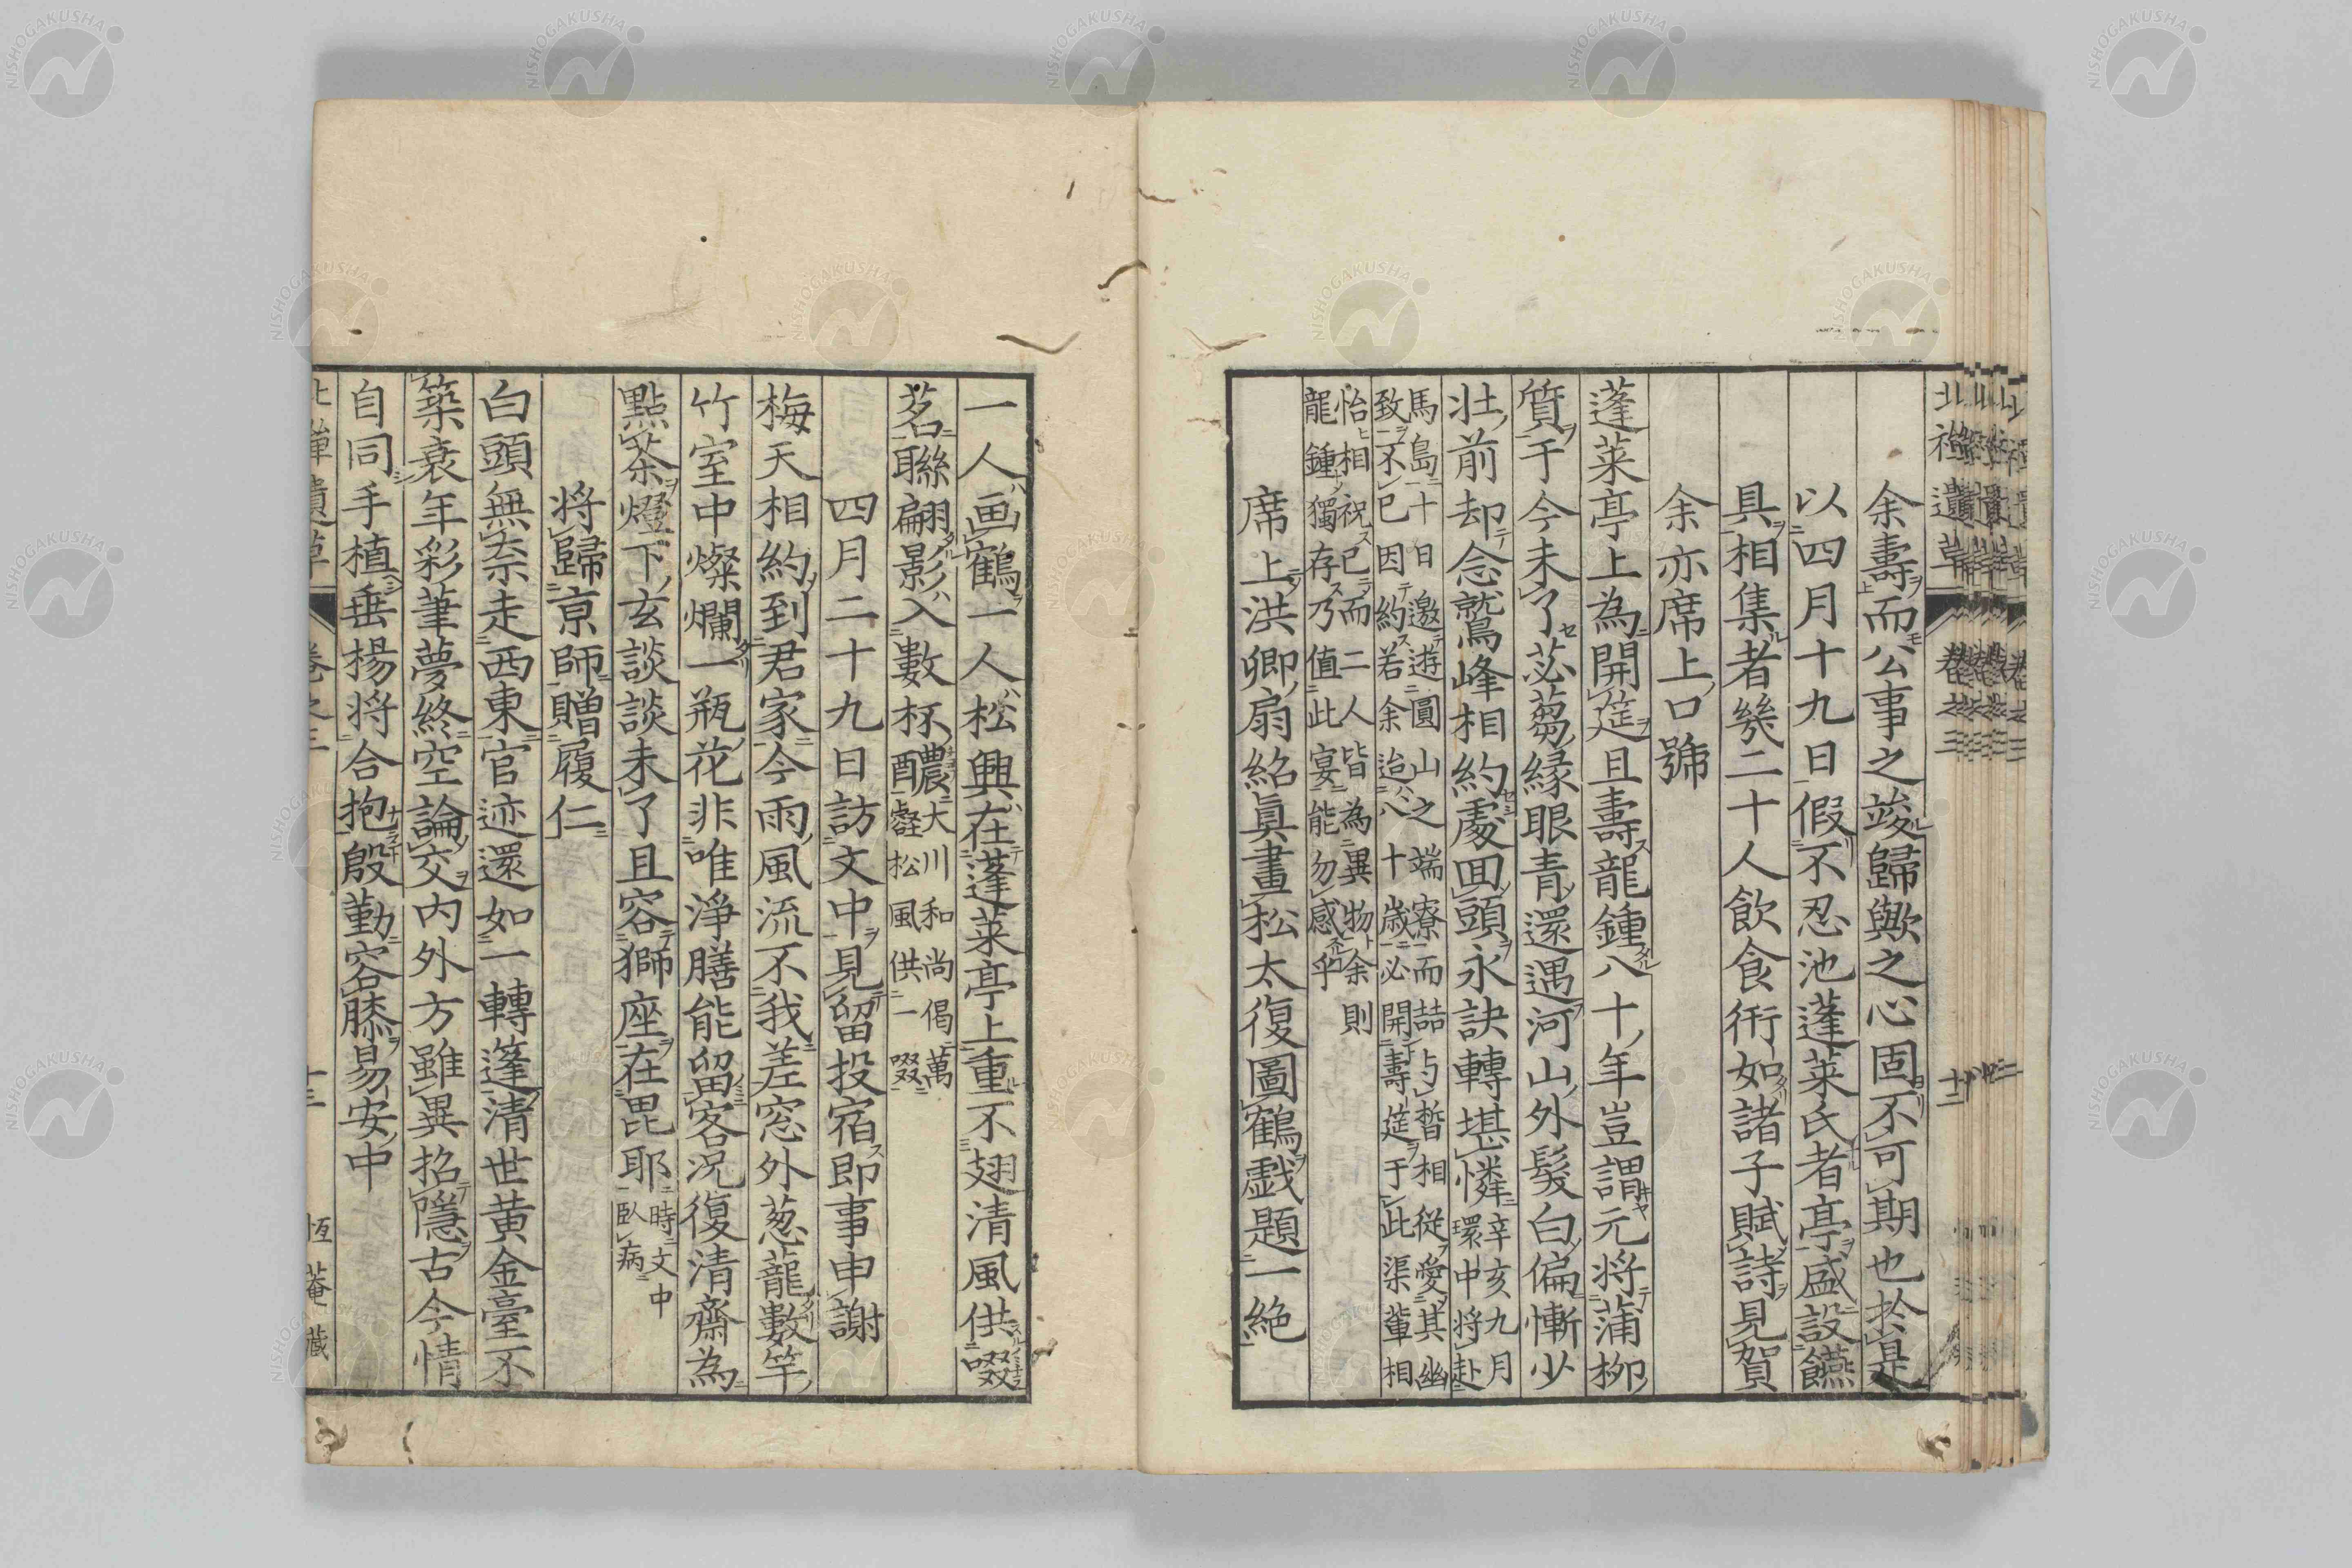 余壽而公事之竣歸歟之心固不可期也於寔
以四月十九日假不忍池蓬萊氏者亭盛設醼
具相集者幾二十人飲食衎如諸子賦詩見賀
余亦席上口號
蓬萊亭上為開筵且壽龍鍾八十年豈謂元將蒲柳
質于今未了苾蒭緣眼青還遇河山外髮白偏慚少
壯前却念鷲峰相約處囬頭永訣轉堪憐辛亥九月環中將赴
馬島十日邀遊圓山之端寮而詰与皙相従愛其幽
致不已因約若余迨八十歳必開壽筵于此渠輩相
怡相祝已而二人皆為異物余則
龍鍾獨存乃值此宴能勿感乎
席上洪卿扇紹眞畫松太復圖鶴戯題一絶
一人画鶴一人松興在蓬萊亭上重不翅清風供啜
茗聯翩影入數杯醲大川和尚偈萬壑松風供一啜
四月二十九日訪文中見留投宿即事申謝
梅天相約到君家今雨風流不我差窓外葱蘢數竿
竹室中燦爛一瓶花非唯淨膳能留客況復清齋為
點茶燈下玄談談未了且容獅座在毘耶時文中臥病
將歸京師贈履仁
白頭無奈走西東官迹還如一轉篷清世黄金臺不
築衰年彩筆夢終空論交内外方雖異招隱古今情
自同手植垂楊將合抱殷勤容膝易安中
北禪遺草 卷之三 十三 恆菴藏
NISHOGAKUSHA